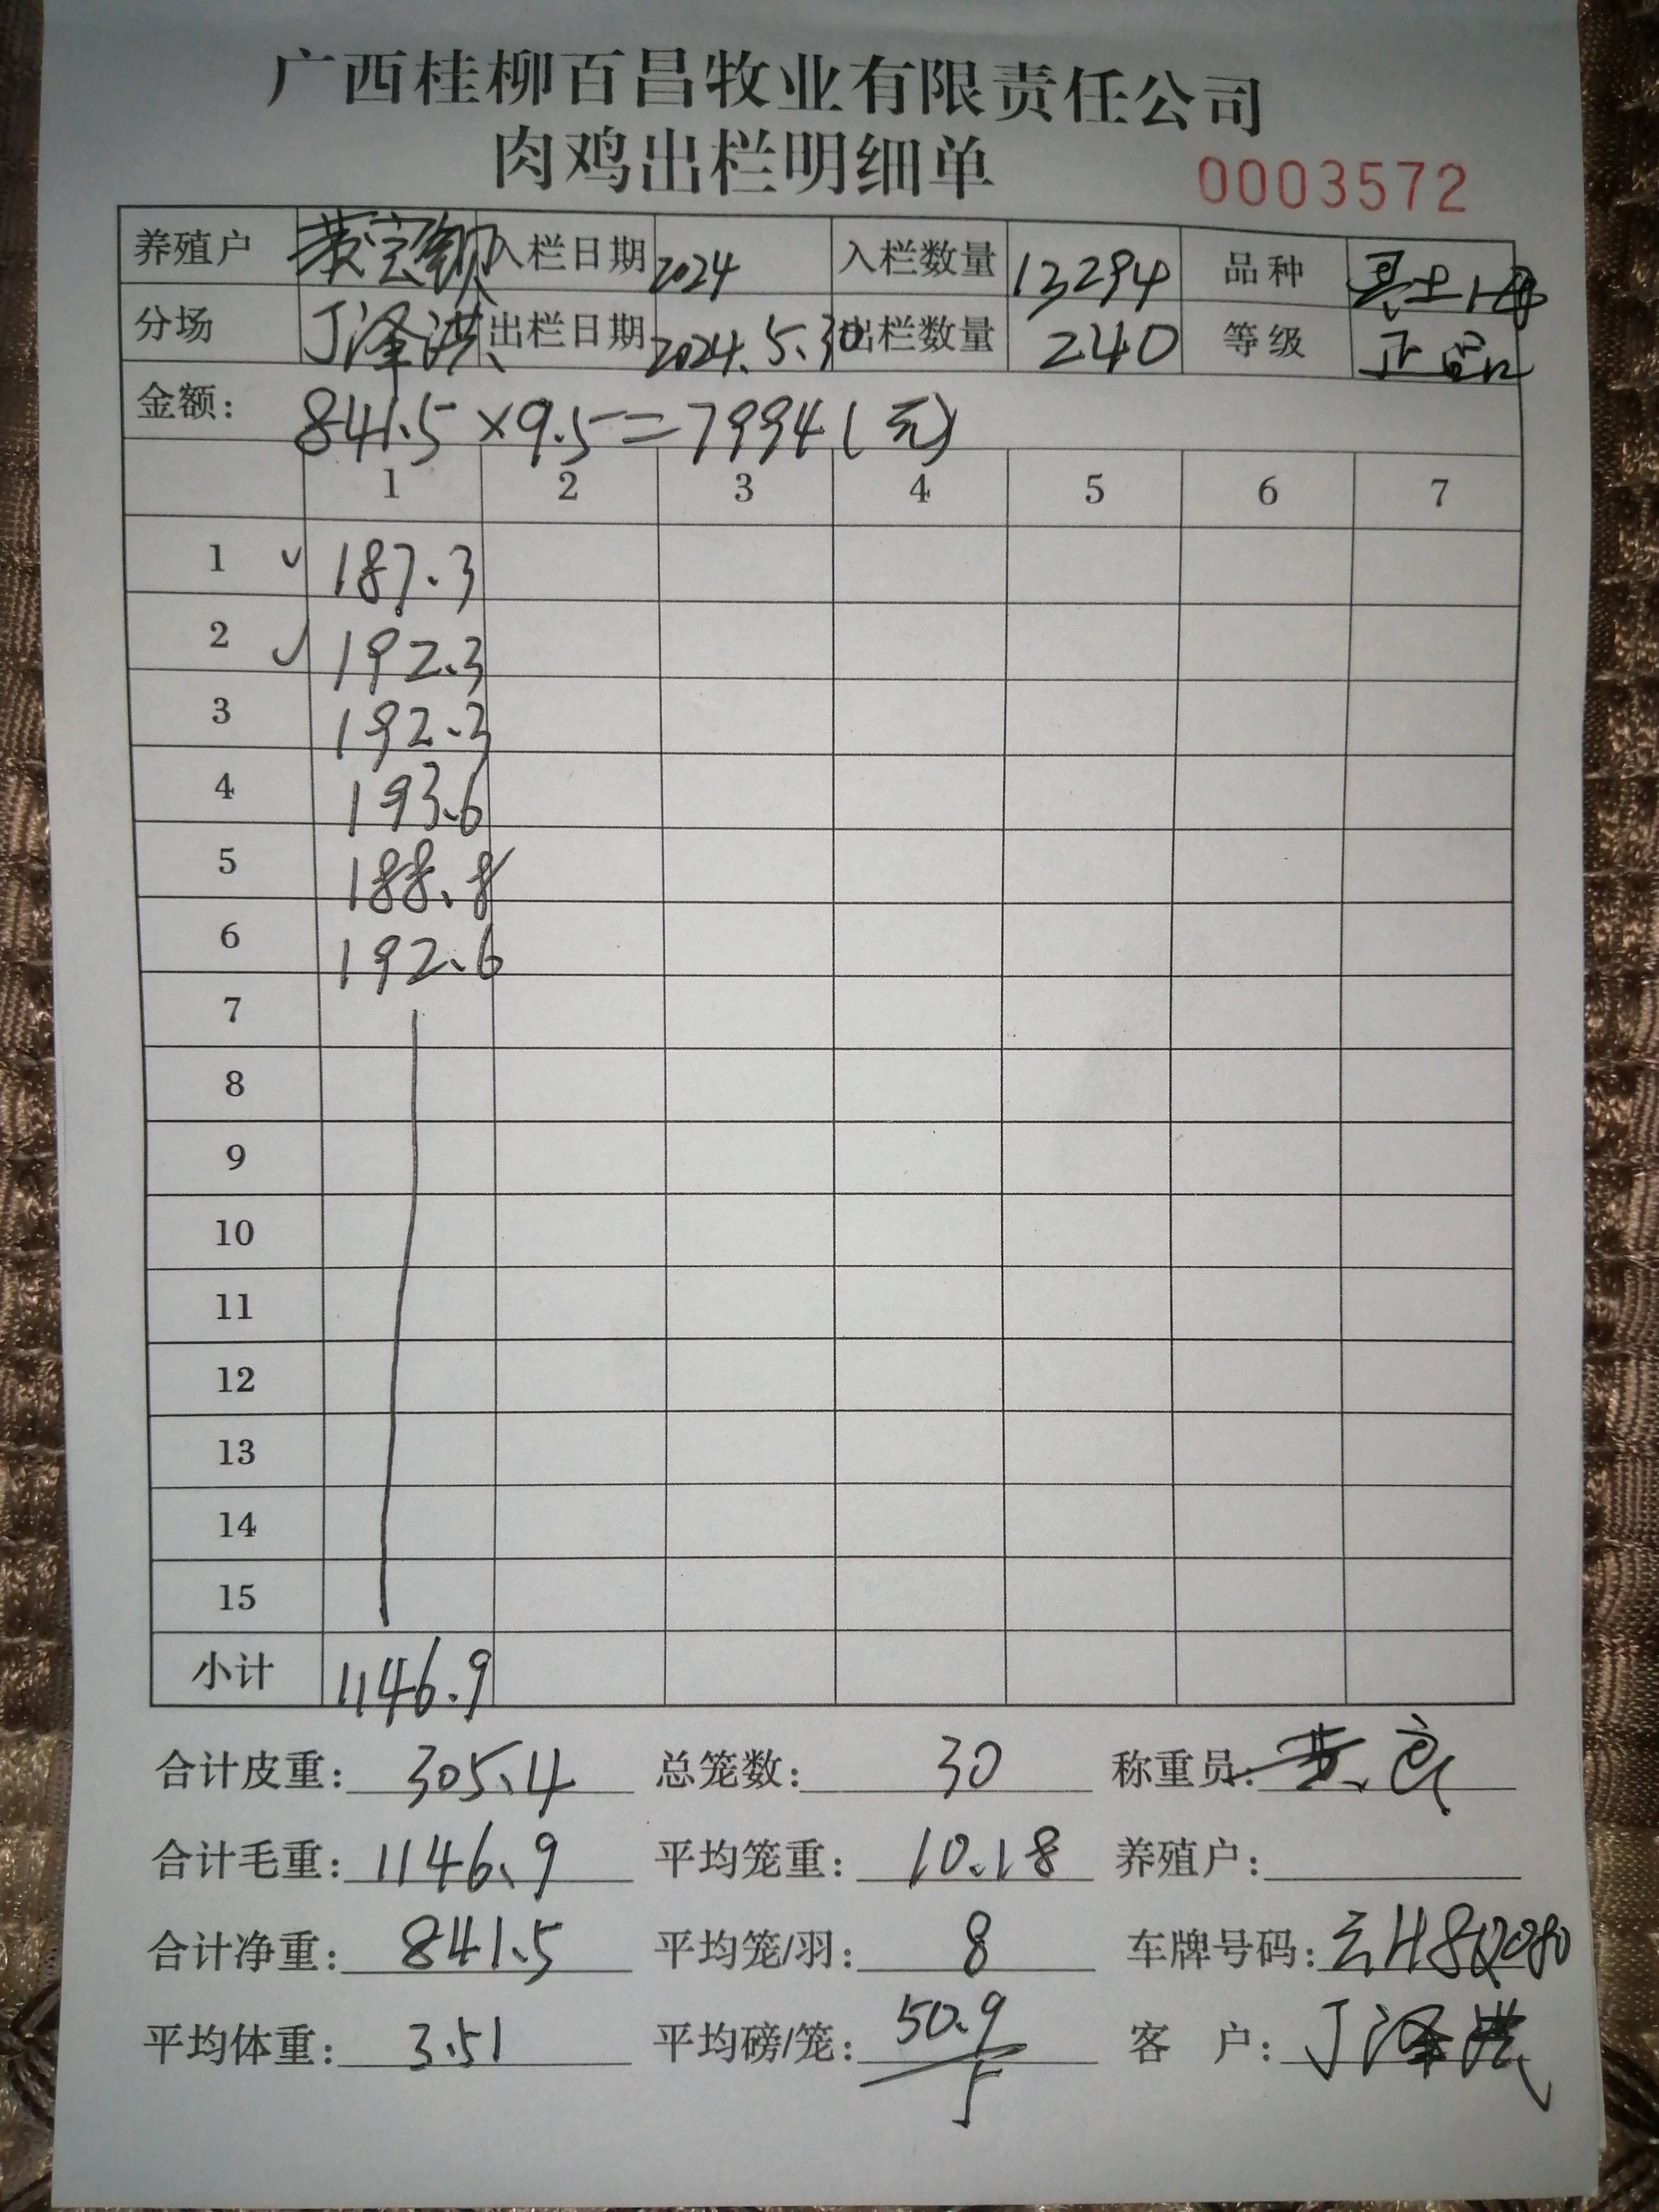 广西桂柳百昌牧业有限责任公司
肉鸡出栏明细单 0003572
养殖户 黄宝 入栏日期 2024 入栏数量 13294 品种 土1母
分场 丁泽洪 出栏日期 2024.5.30 出栏数量 240 等级 正品
金额: 841.5×9.5=7994(元)
1 2 3 4 5 6 7
1 187.3
2 192.3
3 192.3
4 193.6
5 188.8
6 192.6
7
8
9
10
11
12
13
14
15
小计 1146.9
合计皮重: 305.4 总笼数: 30 称重员: 黄
合计毛重: 1146.9 平均笼重: 10.18 养殖户:
合计净重: 841.5 平均笼/羽: 8 车牌号码: 云H8Q080
平均体重: 3.51 平均磅/笼: 50.9/5 客 户: 丁泽洪